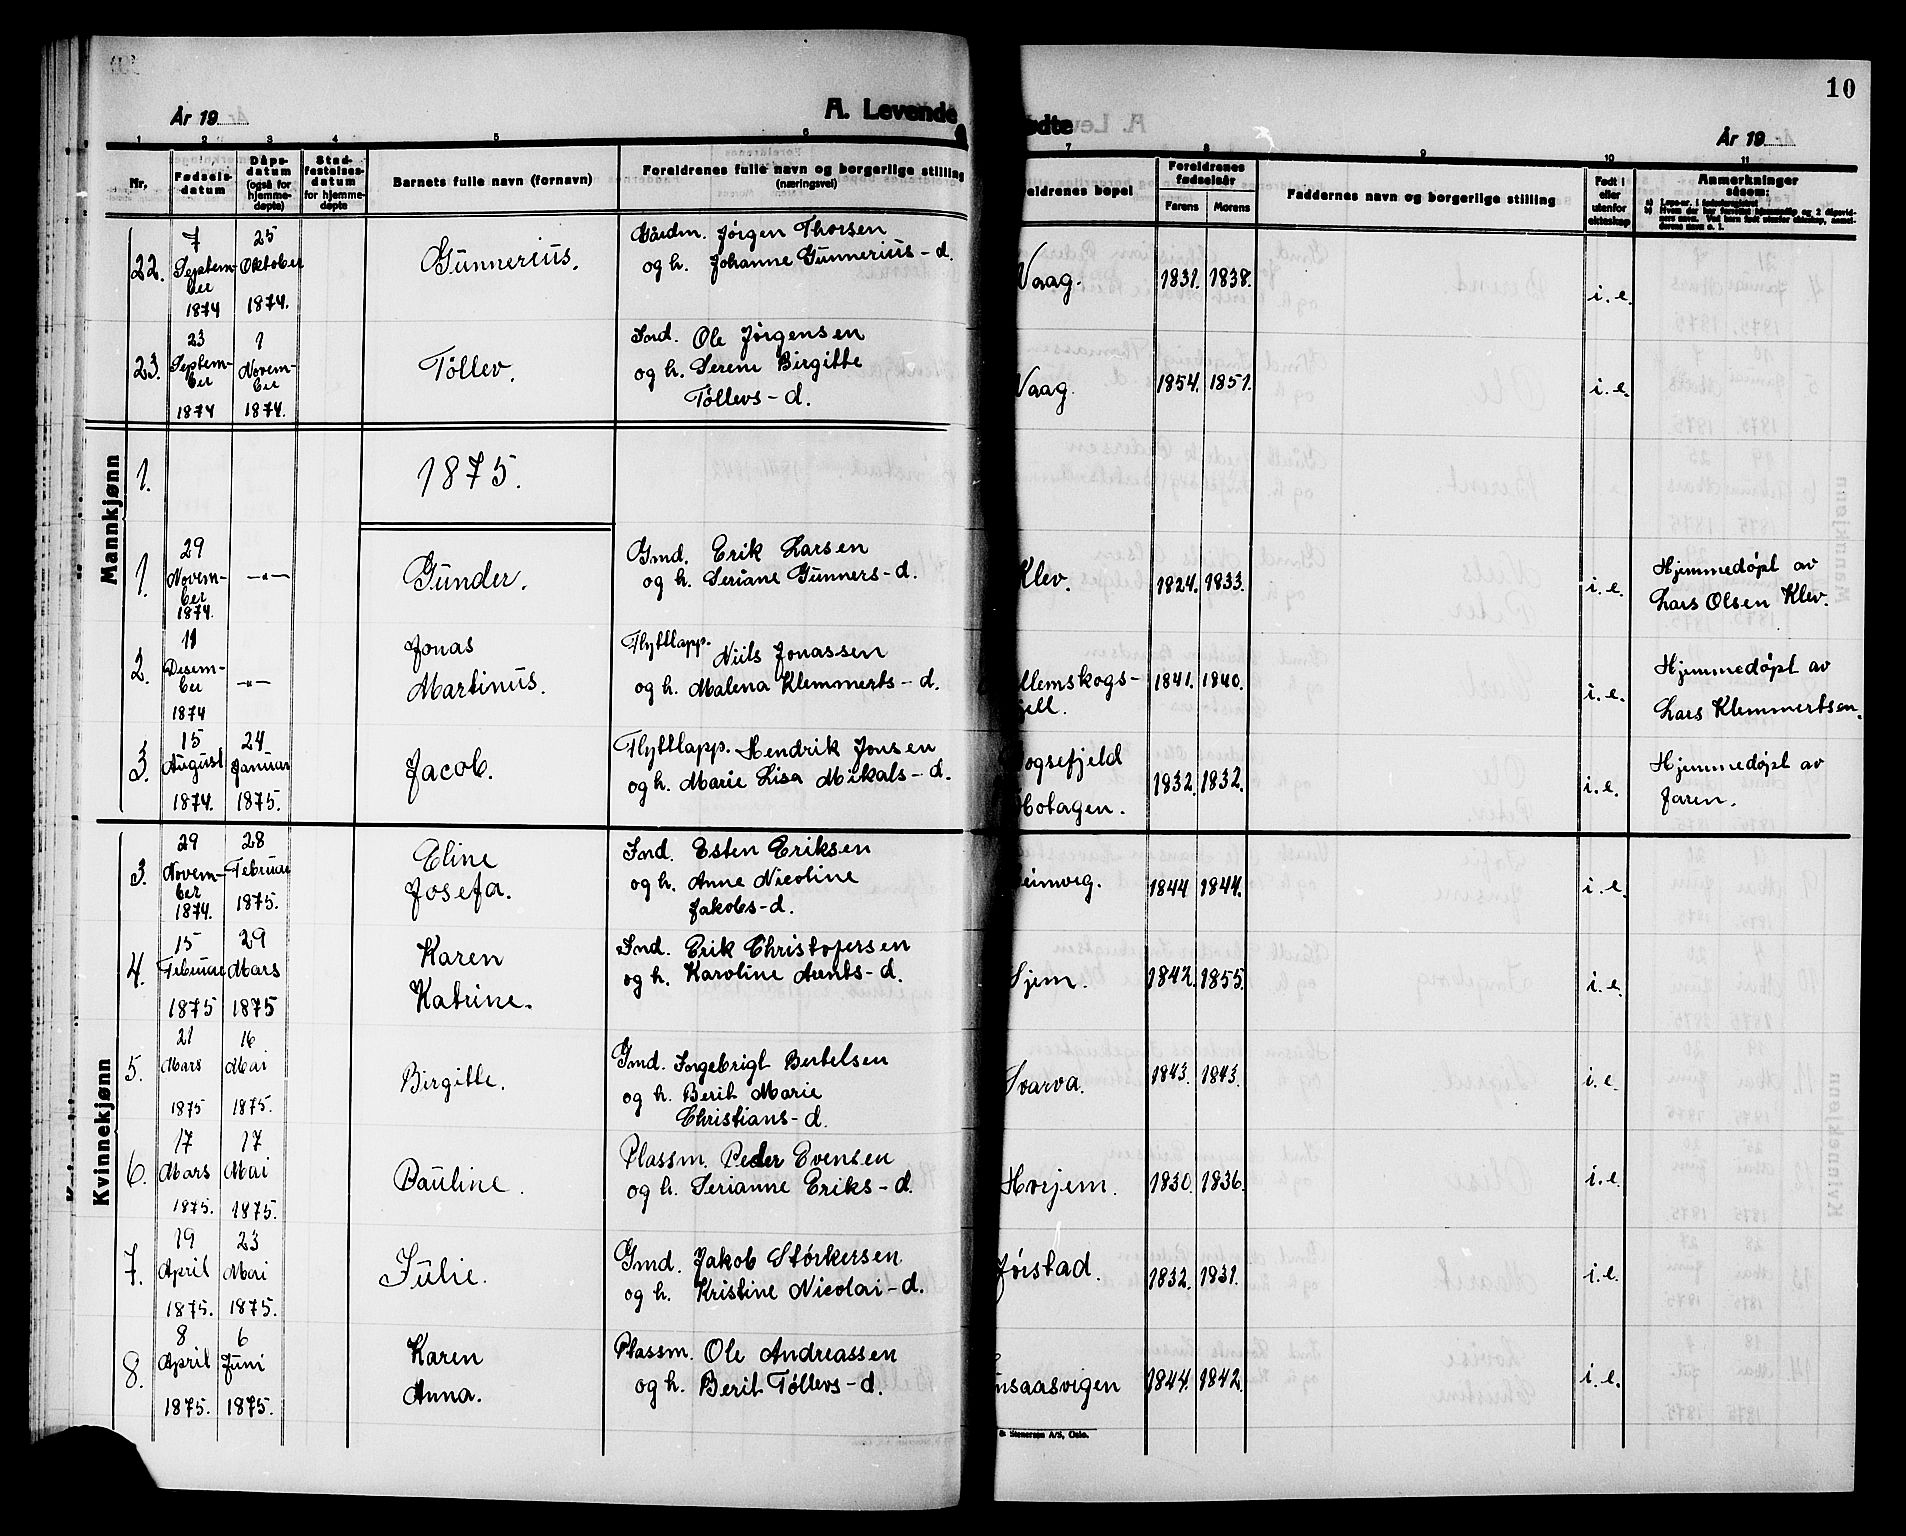 10
År 19
A. Levende
født e
År 19
1 2 3 4 5 6 7 8 9 10 11
Nr. Fødselsdatum Dåpsdatum (også for hjemmedøpte) Stadfestelsesdatum for hjemmedøpte Barnets fulle navn (fornavn) Foreldrenes fulle navn og borgerlige stilling (næringsvei) eldrenes bopel Foreldrenes fødselsår Farens Morens Faddernes navn og borgerlige stilling Født i eller utenfor ekteskap Anmerkninger såsom:
22. 7 September 1874 25 Oktober 1874. Gunnerius. Gårdm. Jørgen Thorsen
og h. Johanne Gunnerius-d. Vaag. 1831. 1838. i.e.
23. 23 September 1874 1 November 1874. Tøllev. Ind. Ole Jørgensen
og h. Serene Birgitte
Tøllevs-d. Vaag. 1854. 1851. i.e.
Mannkjønn
1. 1875.
1. 29 November 1874. -"- Gunder. Gmd. Erik Larsen
og h. Seriane Gunners-d. Klev. 1824. 1833. i.e. Hjemmedøpt av
Lars Olsen Klev.
2. 11 Desember 1874 -"- Jonas
Martinus. Flyttlapp. Niils Jonassen
og h. Malena Klemmerts-d. llemskogs-
jell. 1841. 1840. i.e. Hjemmedøpt av
Lars Klemmertsen.
3. 15 August 1874. 24 Januar 1875. Jacob. Flyttlapp. Hendrik Jonsen
og h. Marie Lisa Mikals-d. ogsefjeld
Hotagen. 1832. 1832. i.e. Hjemmedøpt av
Faren.
Kvinnekjønn
3. 29 November 1874. 28 Februar 1875. Eline
Josefa. Ind. Esten Eriksen
og h. Anne Nicoline
Jakobs-d. eimvig. 1844 1844. i.e.
4. 15 Februar 1875 29 Mars 1875 Karen
Katrine. Ind. Erik Christofersen
og h. Karoline Arnts-d. Sjem. 1842. 1855. i.e.
5. 21 Mars 1875 16 Mai 1875. Birgitte. Gmd. Ingebrigt Bertelsen
og h. Berit Marie
Christians-d. Svarva. 1843. 1843. i.e.
6. 17 Mars 1875. 17 Mai 1875. Pauline. Plassm. Peder Evensen
og h. Serianne Eriks-d. Hvrjem. 1830. 1836. i.e.
7. 19 April 1875. 23 Mai 1875. Julie. Gmd. Jakob Størkersen
og h. Kristine Nicolai-d. Jørstad. 1832. 1831. i.e.
8. 8 April 1875. 6 Juni 1875. Karen
Anna. Plassm. Ole Andreassen
og h. Berit Tøllevs-d. nsaasvigen 1844. 1842. i.e.
& Stenersen A/S, Oslo.